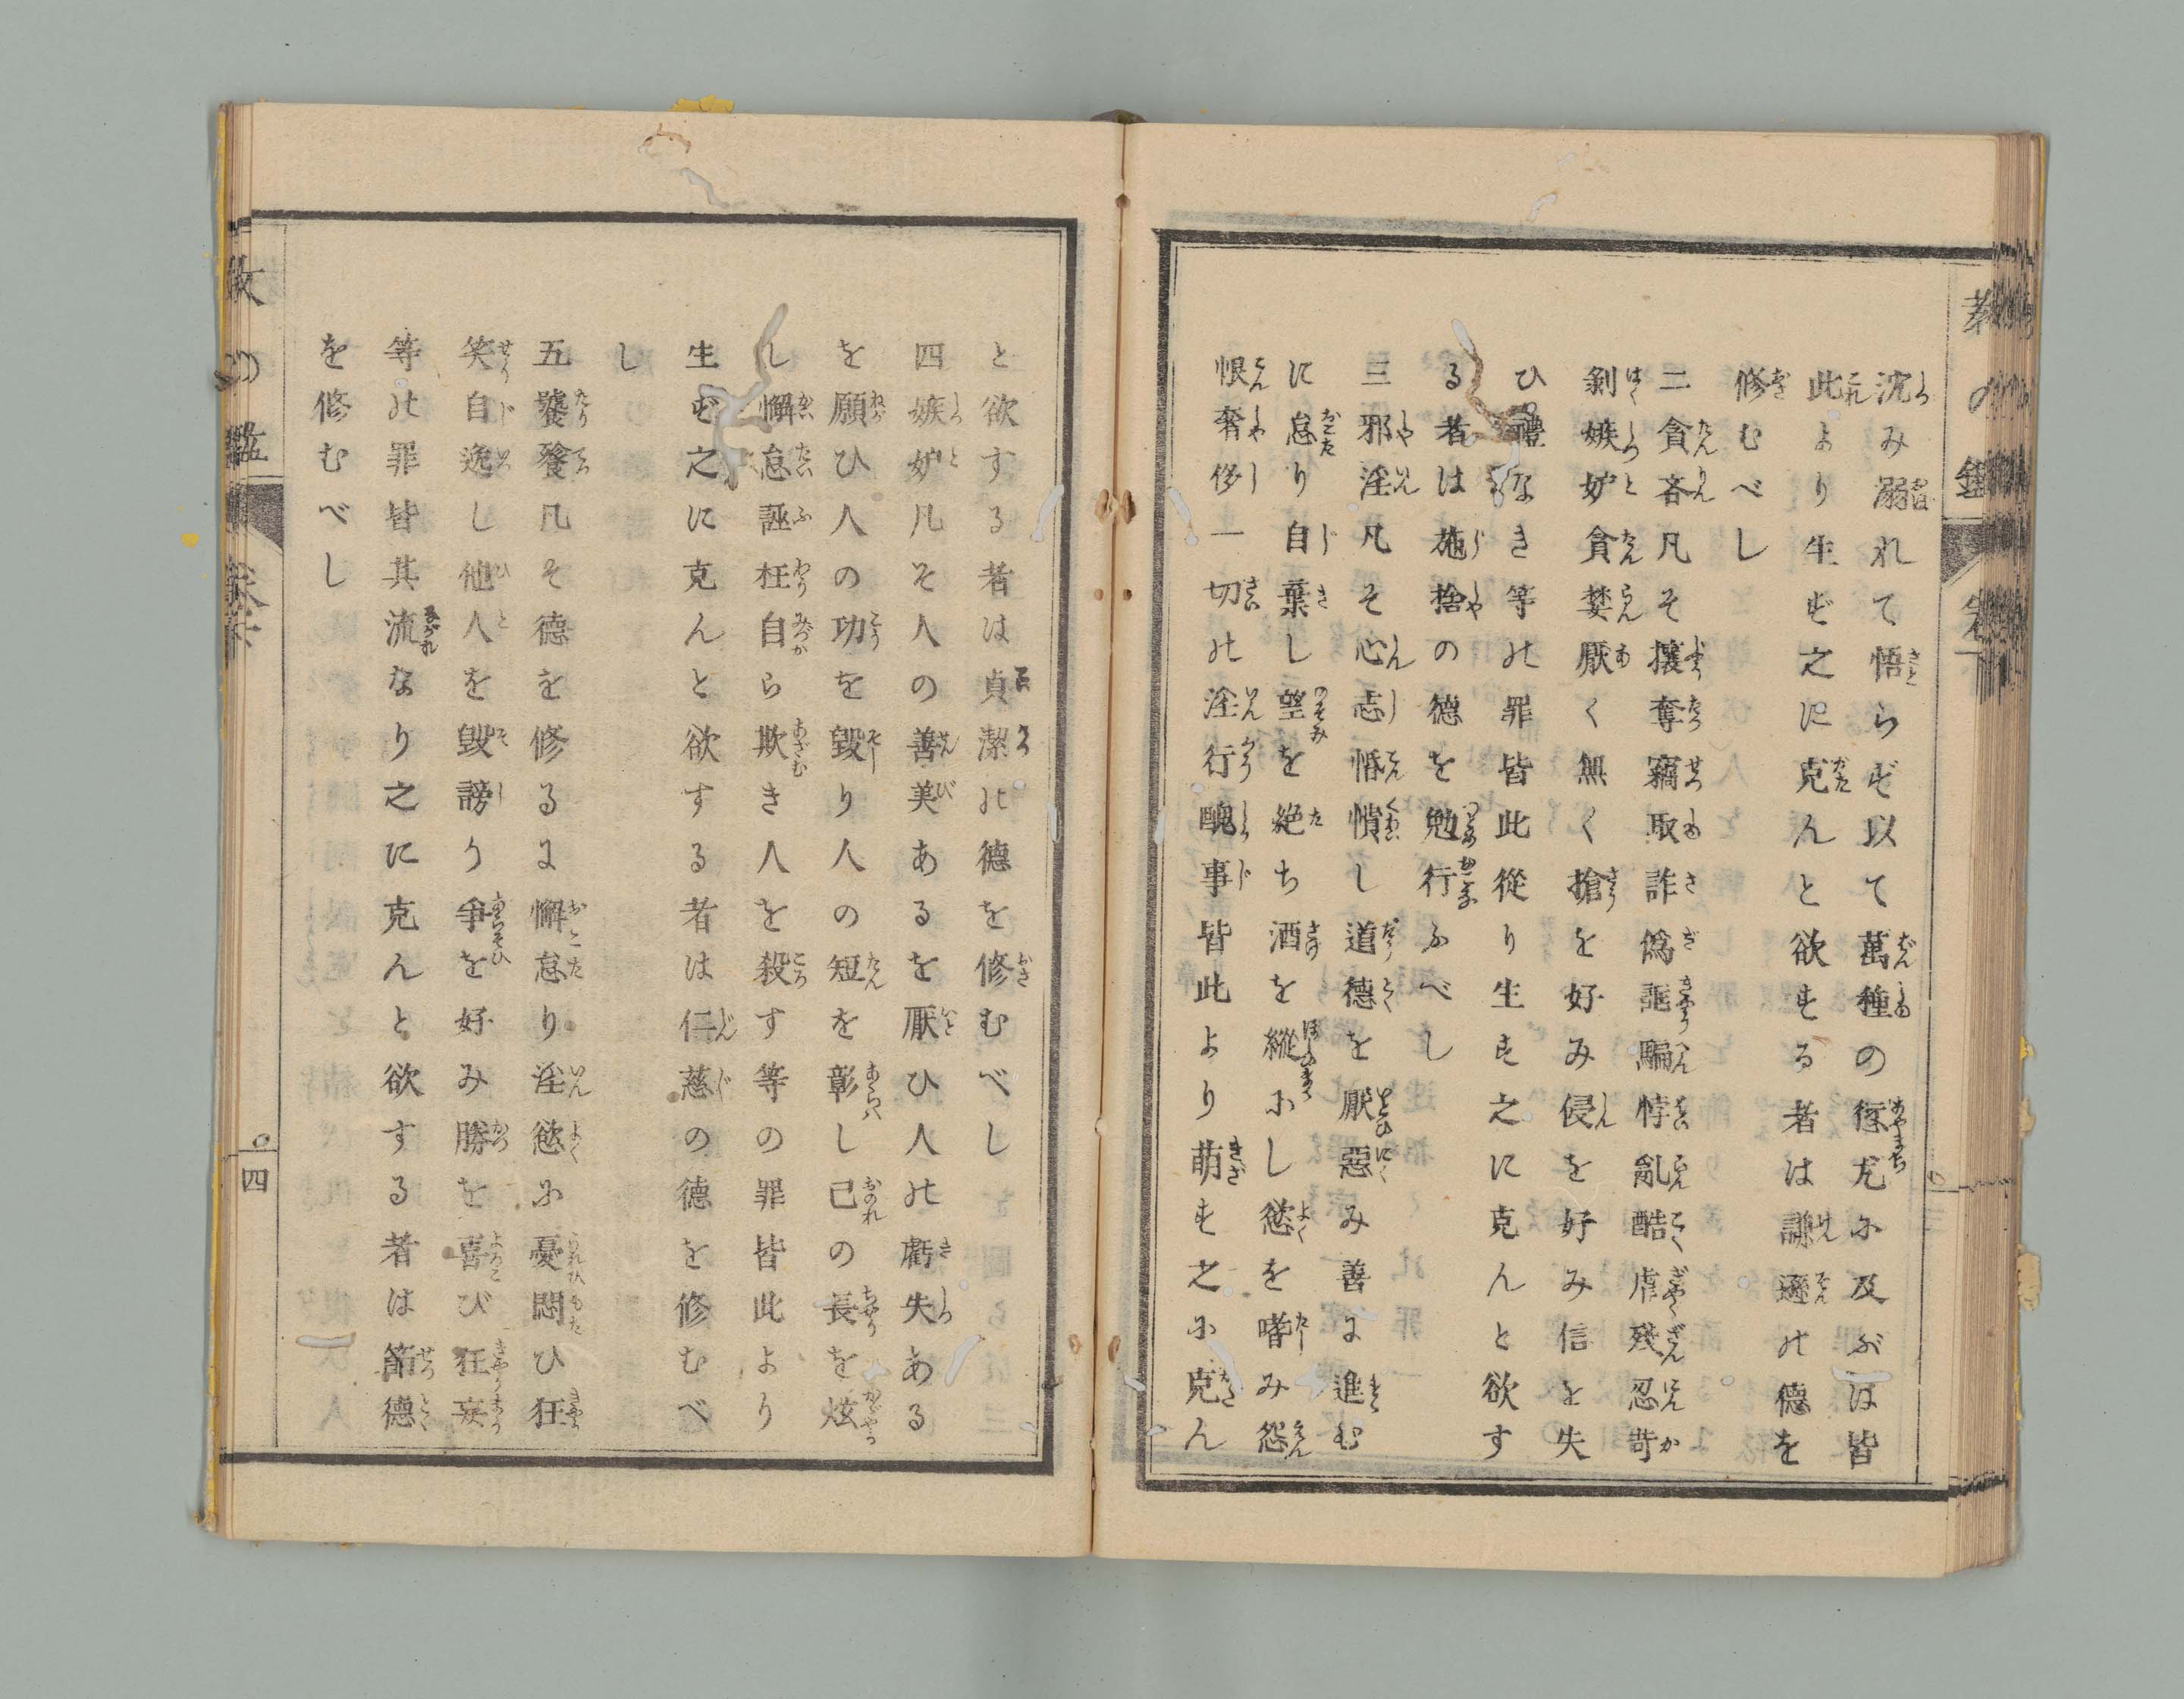 沈み溺れて悟らず以て萬種の愆尤に及ぶは皆
此より生ず之に克んと欲する者は謙遜の德を
修むべし
二貪吝凡そ攘奪竊取詐僞誆騙悖亂酷虐殘忍苛
剝嫉妒貪婪厭く無く搶を好み侵を好み信を失
ひ禮なき等の罪皆此從り生す之に克んと欲す
る者は施捨の德を勉行ふべし
三邪淫凡そ心志惛憒し道德を厭惡み善に進む
に怠り自棄し望を絶ち酒を縱にし慾を嗜み怨
恨奢侈一切の淫行醜事皆此より萌す之に克ん
と欲する者は貞潔の德を修むべし
四嫉妒凡そ人の善美あるを厭ひ人の虧失ある
を願ひ人の功を毀り人の短を彰し己の長を炫
し懈怠誣枉自ら欺き人を殺す等の罪皆此より
生ず之に克んと欲する者は仁慈の德を修むべ
し
五饕餮凡そ德を修るに懈怠り淫慾に憂悶ひ狂
笑自逸し他人を毀謗り爭を好み勝を喜び狂妄
等の罪皆其流なり之に克んと欲する者は節德
を修むべし
四